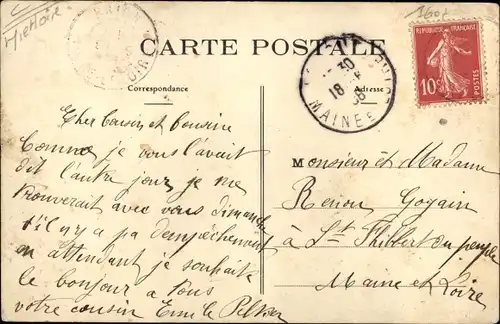 CARTE POSTALE
Correspondance
Adresse
RÉPUBLIQUE FRANÇAISE
10c
18
MAINE
Cher Cousin et Cousine
Comme je vous l'avait
dit l'autre jour je me
trouverait avec vous dimanche
s'il n'y a pa d'empêchement
en attendant je souhaite
le bonjour a tous
votre cousin Emile
Monsieur et Madame
Renou Gogain
à St Philbert du peuple
Maine et Loire